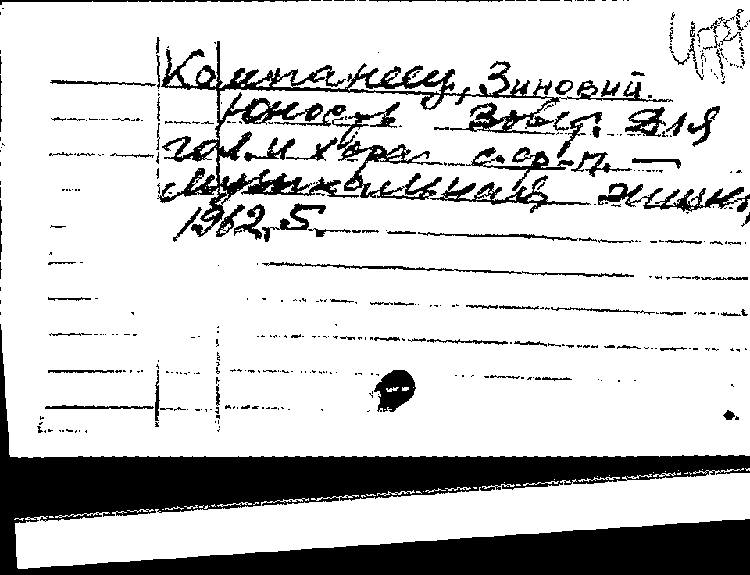 Компанеец, Зиновий.
Юность зовет. Для
гол. и хора с. ф-п. —
Музыкальная жизнь,
1962, 5.